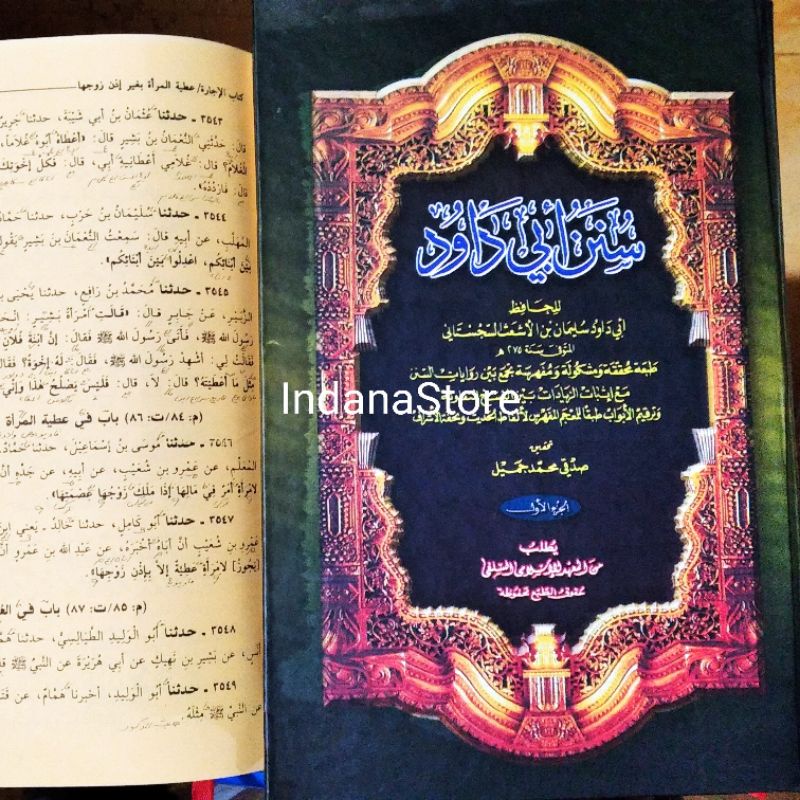 كتاب الإجارة/ عطية المرأة بغير إذن زوجها
٣٥٤٣ ـ حدثنا عُثْمَانُ بنُ أبي شَيْبَةَ، حدثنا جَرِيرٌ
قالَ: حَدَّثَنِي النُّعْمَانُ بنُ بَشِيرٍ قالَ: «أعْطَاهُ أبُوهُ غُلَاماً،
الْغُلَامُ؟ قالَ: غُلَامِي أعْطَانِيهِ أبِي، قالَ: فَكُلُّ إخْوَتِكَ
قالَ: فَارْدُدْهُ».
٣٥٤٤ ـ حدثنا سُلَيْمَانُ بنُ حَرْبٍ، حدثنا حَمَّادٌ
المُهَلَّبِ، عن أبِيهِ قالَ: سَمِعْتُ النُّعْمَانَ بنَ بَشِيرٍ يَقُولُ
بَيْنَ أبْنَائِكُم، اعْدِلُوا بَيْنَ أبْنَائِكُم».
٣٥٤٥ ـ حدثنا مُحَمَّدُ بنُ رَافِعٍ، حدثنا يَحْيَى بنُ
الزُّبَيْرِ، عن جَابِرٍ قالَ: «قالَتِ امْرَأةُ بَشِيرٍ: انْحَلْ
رَسُولَ الله ﷺ، فَأتَى رَسُولَ الله ﷺ فقالَ: إنَّ ابْنَةَ فُلَانٍ
فقَالَتْ لِي: أشْهِدْ رَسُولَ الله ﷺ، فقالَ: لَهُ إخْوَةٌ؟ فقالَ
مِثْلَ مَا أعْطَيْتَهُ؟ قالَ: لَا، قالَ: فَلَيْسَ يَصْلُحُ هٰذَا وَإنِّي
(م: ٨٤/ت: ٨٦) باب في عطية المرأة
٣٥٤٦ ـ حدثنا مُوسَى بنُ إسْمَاعِيلَ، حدثنا حَمَّادٌ
المُعَلِّمِ، عن عَمْرِو بنِ شُعَيْبٍ، عن أبِيهِ، عن جَدِّهِ أنَّ
لامْرَأةٍ أمْرٌ فِي مَالِهَا إذَا مَلَكَ زَوْجُهَا عِصْمَتَهَا».
٣٥٤٧ ـ حدثنا أبُو كَامِلٍ، حدثنا خَالِدٌ ـ يَعني ابنَ
عَمْرِو بنِ شُعَيْبٍ أنَّ أبَاهُ أخْبَرَهُ، عن عَبْدِ الله بنِ عَمْرٍو أنَّ
[يَجُوزُ] لامْرَأةٍ عَطِيَّةٌ إلاَّ بإذْنِ زَوْجِهَا».
(م: ٨٥/ت: ٨٧) باب في
٣٥٤٨ ـ حدثنا أبُو الْوَلِيدِ الطَّيَالِسِيُّ، حدثنا هَمَّامٌ
أنَسٍ، عن بَشِيرِ بنِ نَهِيكٍ عن أبي هُرَيْرَةَ عن النَّبيِّ ﷺ
٣٥٤٩ ـ حدثنا أبُو الْوَلِيدِ، أخبرنا هَمَّامٌ، عن
عن النَّبيِّ ﷺ مِثْلَهُ
سُنَنُ أَبِي دَاوُد
للحافظ
أبي داود سليمان بن الأشعث السجستاني
المتوفى سنة ٢٧٥ هـ
طبعة محققة ومشكولة ومفهرسة تجمع بين روايات السنن
مع إثبات الزيادات بين
وترقيم الأبواب طبقًا للمعجم المفهرس لألفاظ الحديث وتحفة الأشراف
تحقيق
صدقي محمد جميل
الجزء الأول
يطلب
من المعهد الإسلامي السلفي
حقوق الطبع محفوظة
IndanaStore